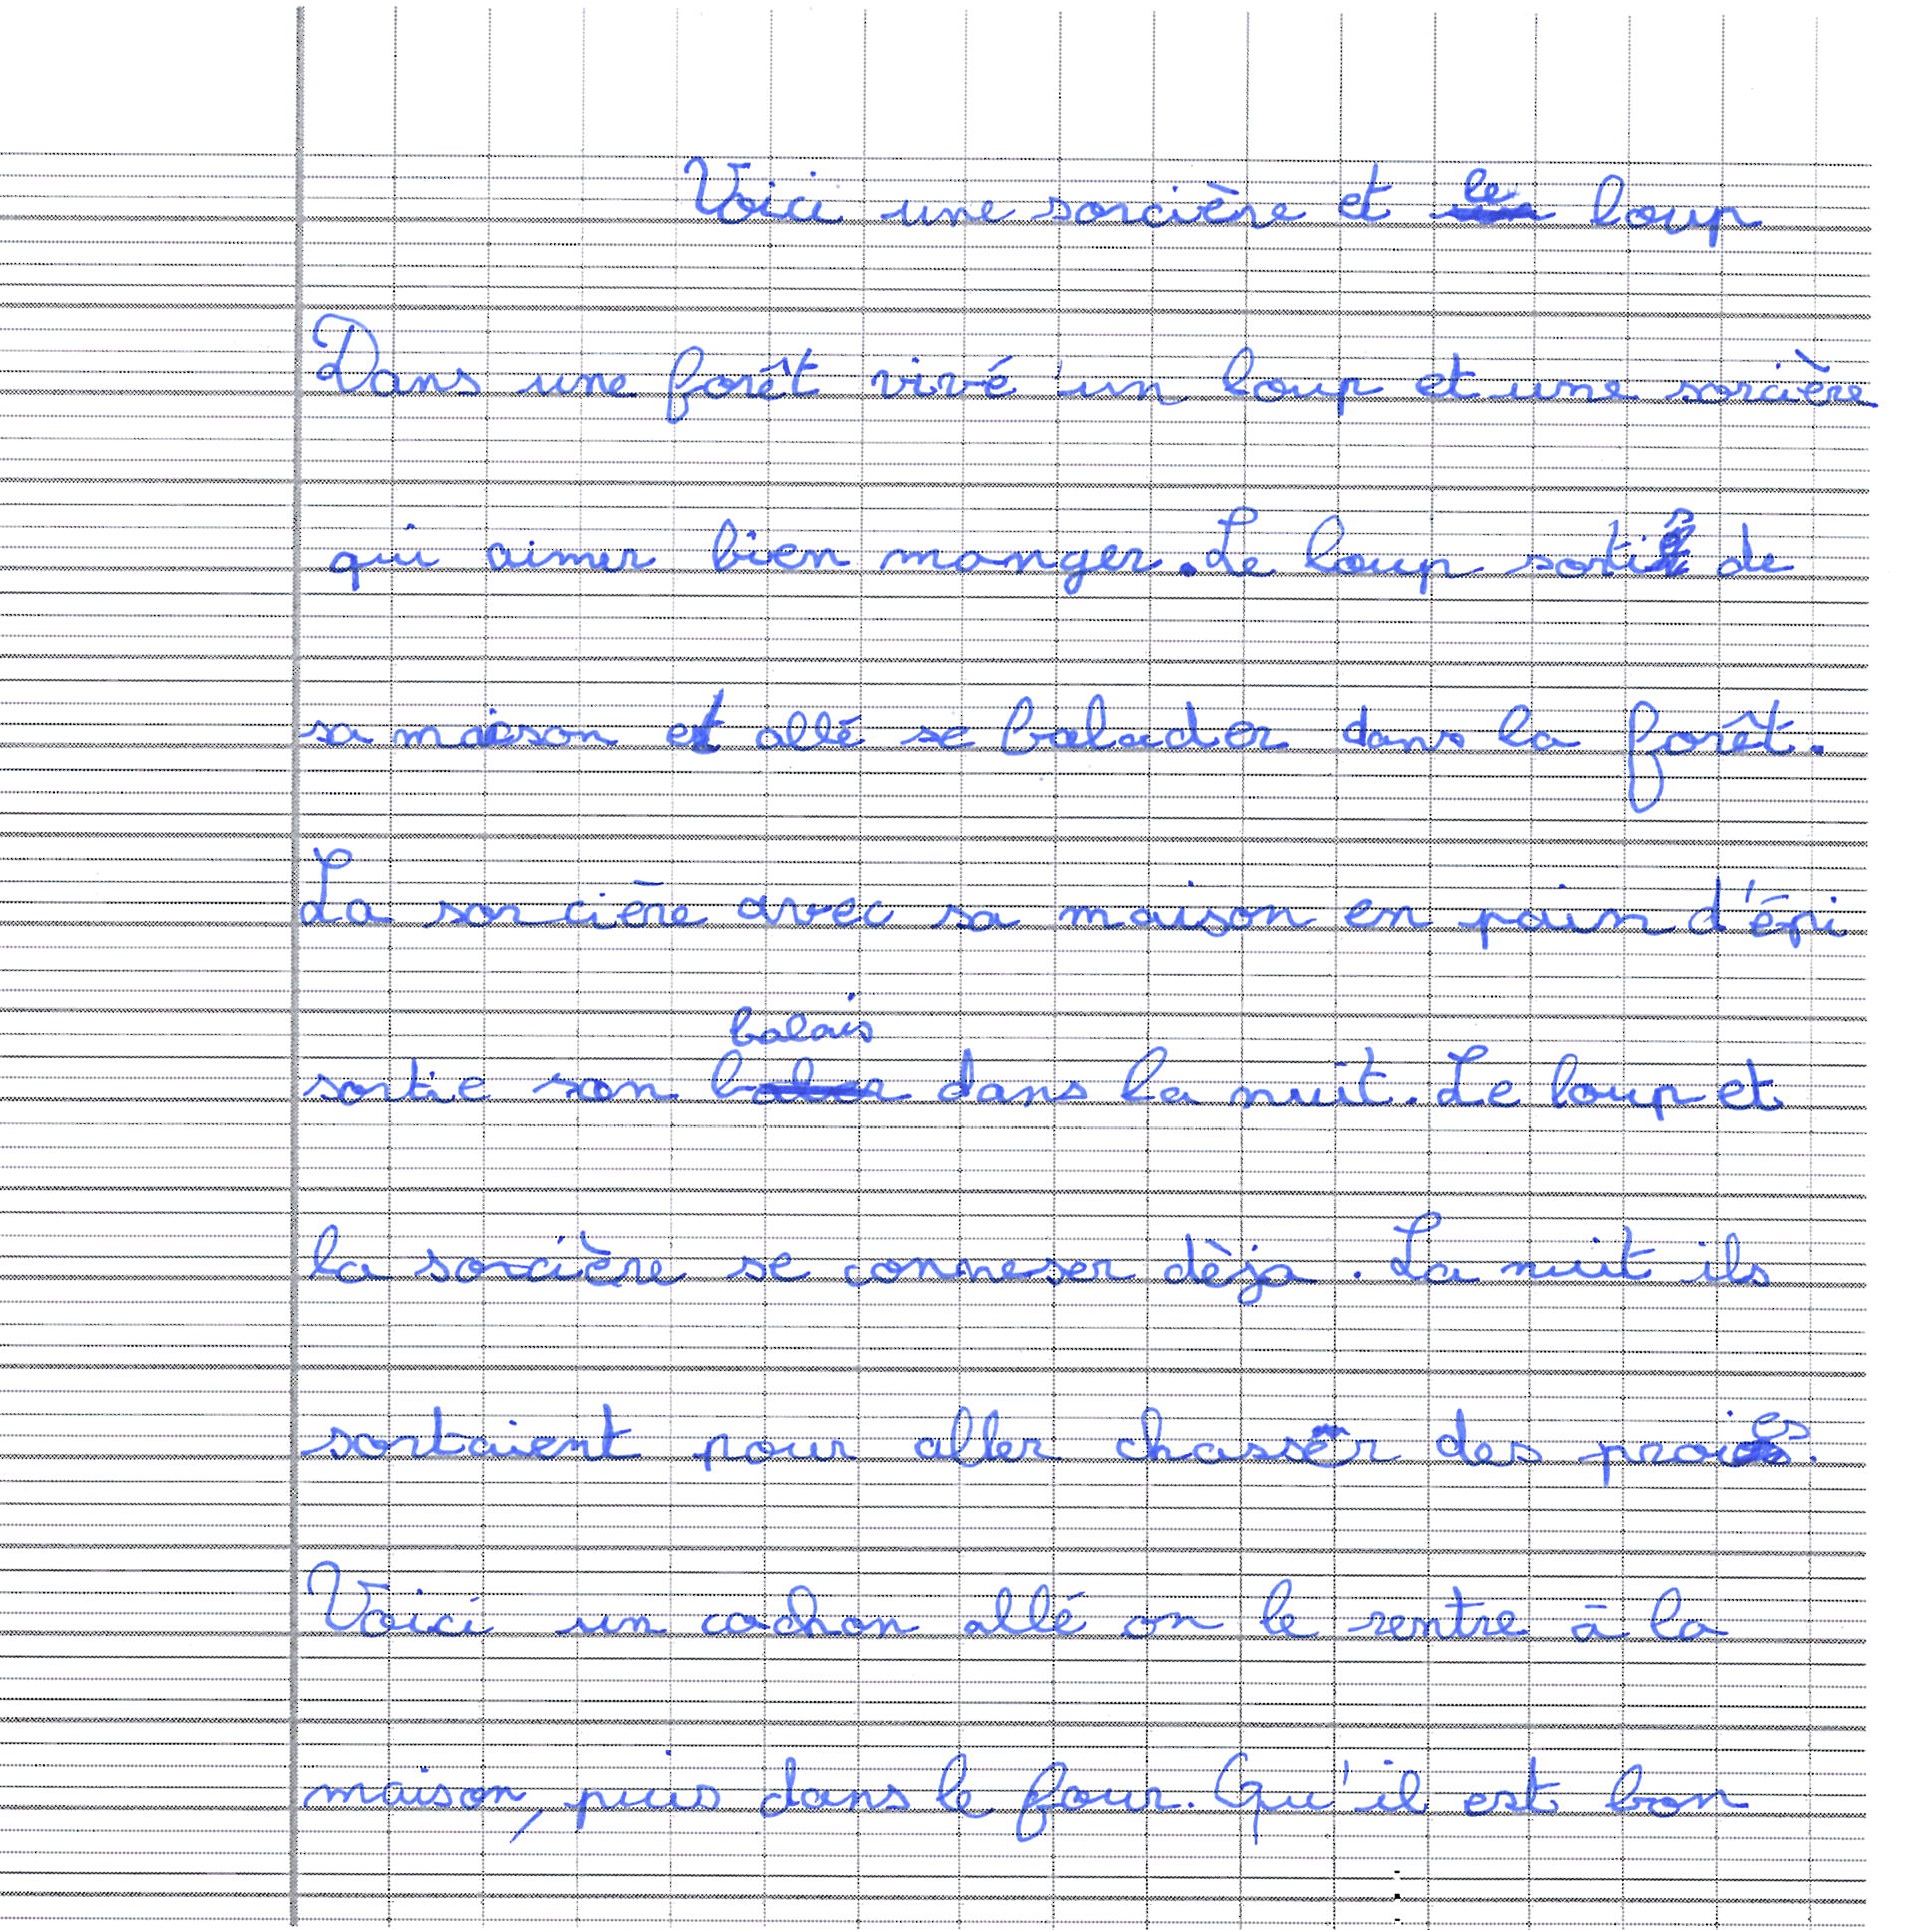 Voici une sorcière et le loup
Dans une forêt vivé un loup et une sorcière
qui aimer bien manger. Le loup sorti de
sa maison et allé se balader dans la forêt.
La sorcière avec sa maison en pain d'épi
sortie son balais dans la nuit. Le loup et
la sorcière se conneser dèja. La nuit ils
sortaient pour aller chasser des proies.
Voici un cochon allé on le rentre à la
maison, puis dans le four. Qu'il est bon